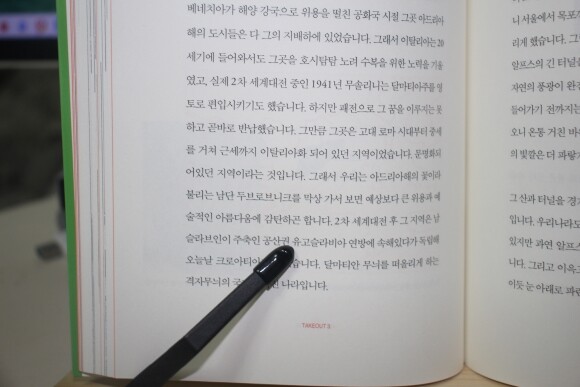 베네치아가 해양 강국으로 위용을 떨친 공화국 시절 그곳 아드리아
해의 도시들은 다 그의 지배하에 있었습니다. 그래서 이탈리아는 20
세기에 들어와서도 그곳을 호시탐탐 노려 수복을 위한 노력을 기울
였고, 실제 2차 세계대전 중인 1941년 무솔리니는 달마티아주를 영
토로 편입시키기도 했습니다. 하지만 패전으로 그 꿈을 이루지는 못
하고 곧바로 반납했습니다. 그만큼 그곳은 고대 로마 시대부터 중세
를 거쳐 근세까지 이탈리아화 되어 있던 지역이었습니다. 문명화되
어있던 지역이라는 것입니다. 그래서 우리는 아드리아해의 꽃이라
불리는 남단 두브로브니크를 막상 가서 보면 예상보다 큰 위용과 예
술적인 아름다움에 감탄하곤 합니다. 2차 세계대전 후 그 지역은 남
슬라브인이 주축인 공산권 유고슬라비아 연방에 속해있다가 독립해
오늘날 크로아티아 습니다. 달마티안 무늬를 떠올리게 하는
격자무늬의 국 나라입니다.
TAKEOUT 3
니 서울에서 목포
리게 했습니다. 그
알프스의 긴 터널을
자연의 풍광이 완전
들어가기 전까지는
오니 온통 거친 바
의 빛깔은 더 파랗
그 산과 터널을 경
입니다. 우리나라도
있지만 과연 알프스
니다. 그리고 이윽
이듯 눈 아래로 파란